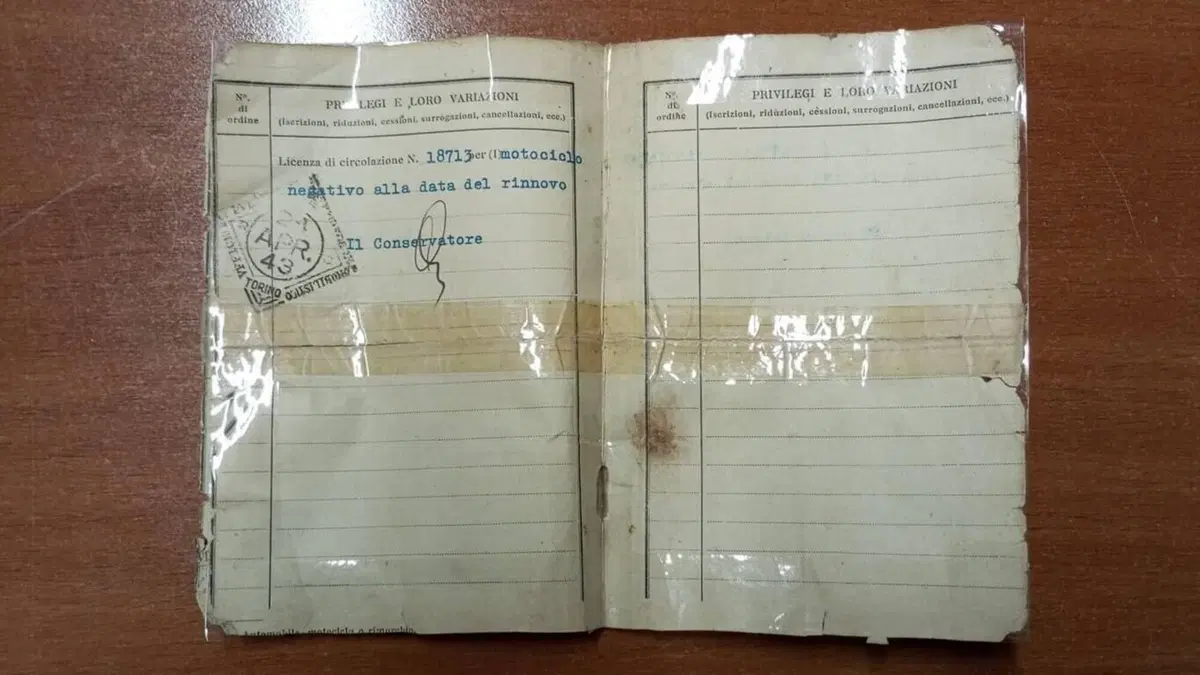 Nº.
di
ordine
PRIVILEGI E LORO VARIAZIONI
(Iscrizioni, riduzioni, cessioni, surrogazioni, cancellazioni, ecc.)
Licenza di circolazione N. 18713 per (1) motociclo
negativo alla data del rinnovo
Il Conservatore
APR.
43
TORINO
Automobile, motociclo o rimorchio.
Nº.
di
ordine
PRIVILEGI E LORO VARIAZIONI
(Iscrizioni, riduzioni, cessioni, surrogazioni, cancellazioni, ecc.)